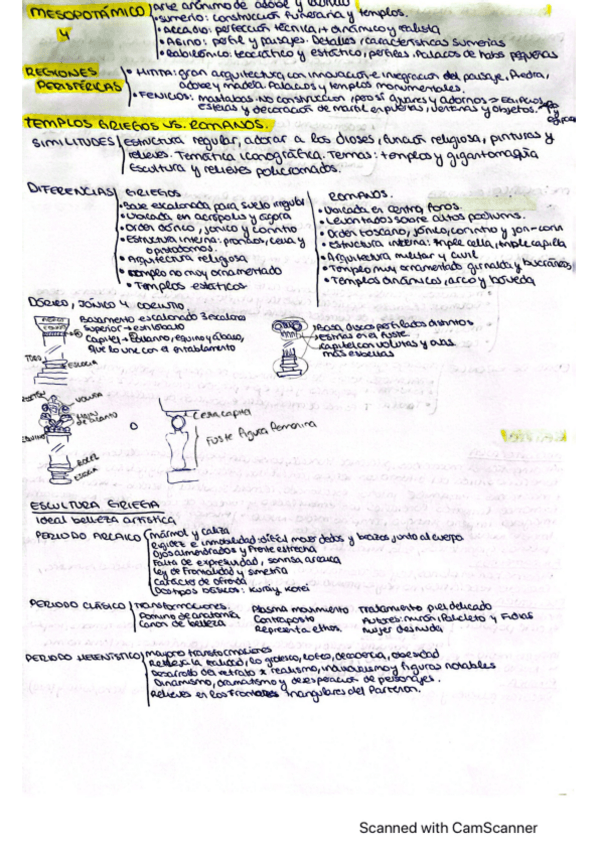 MESOPOTÁMICO arte anónimo de adobe y
y •Sumerio: construcción funeraria y templos.
•Arcadio: perfección técnica, + dinámico y realista
•Asirio: perfil y paisajes. Detalles, características sumerias
•Babilónico: teocrático y estático, perfiles. Palacios de pequeñas
REGIONES PERISFÉRICAS •HITITA: gran arquitectura con innovación e integración del paisaje. Piedra,
adobe y madera. Palacios y templos monumentales.
•FENICIOS: mastabas. No construcción, pero sí ajuares y adornos →
esferas y decoración de marfil en puertas, ventanas y objetos.
TEMPLOS GRIEGOS VS. ROMANOS.
SIMILITUDES estructura regular, adorar a los dioses, función religiosa, pinturas y
relieves. Temática iconográfica. Temas: templos y gigantomaquia
Escultura y relieves policromados.
DIFERENCIAS GRIEGOS
•Base escalonada para suelo irregular
•Ubicada en acrópolis y ágora
•Orden dórico, jónico y corintio
•Estructura interna: pronaos, cella y
opistodomos.
•Arquitectura religiosa
•Templo no muy ornamentado
•Templos estáticos
ROMANOS.
•Ubicada en centro, foros.
•Levantados sobre altos podiums.
•Orden toscano, jónico, corintio y jon-corin
•Estructura interna: triple cella, triple capilla
•Arquitectura militar y civil
•Templo muy ornamentado girnaldas y bucráneos
•Templos dinámicos, arco y bóveda
DÓRICO, JÓNICO Y CORINTIO
Basamento escalonado 3 escalones
Superior → estilobato
Capitel → collarino, equino y ábaco,
que lo une con el entablamento
Basa, discos perfilados distintos
estrías en el fuste
capitel con volutas y ovas
más esbeltas
VOLUTA
HOJAS
DE ACANTO
o
Cesa capita
Fuste Figura Femenina
ESCULTURA GRIEGA
Ideal belleza artística
PERIODO ARCAICO mármol y caliza
Rigidez e inmovilidad: difícil mover dedos y brazos junto al cuerpo
Ojos almendrados y frente estrecha
Falta de expresividad, sonrisa arcaica
Ley de frontalidad y simetría
Carácter de ofrenda
Dos tipos básicos: kuroi y korei
PERIODO CLÁSICO Transformaciones. Plasma movimiento Tratamiento piel delicado
Dominio de anatomía Contraposto Autores: Mirón, Policleto y Fidias
Canon de belleza Representa ethos. Mujer desnuda
PERIODO HELENÍSTICO mayores transformaciones
Refleja la realidad, lo grotesco, lo feo, decadencia, obesidad
Desarrollo del retrato x realismo, individualismo y figuras notables
Dinamismo, dramatismo y desesperación de personajes.
Relieves en los Frontones triangulares del Partenón.
Scanned with CamScanner